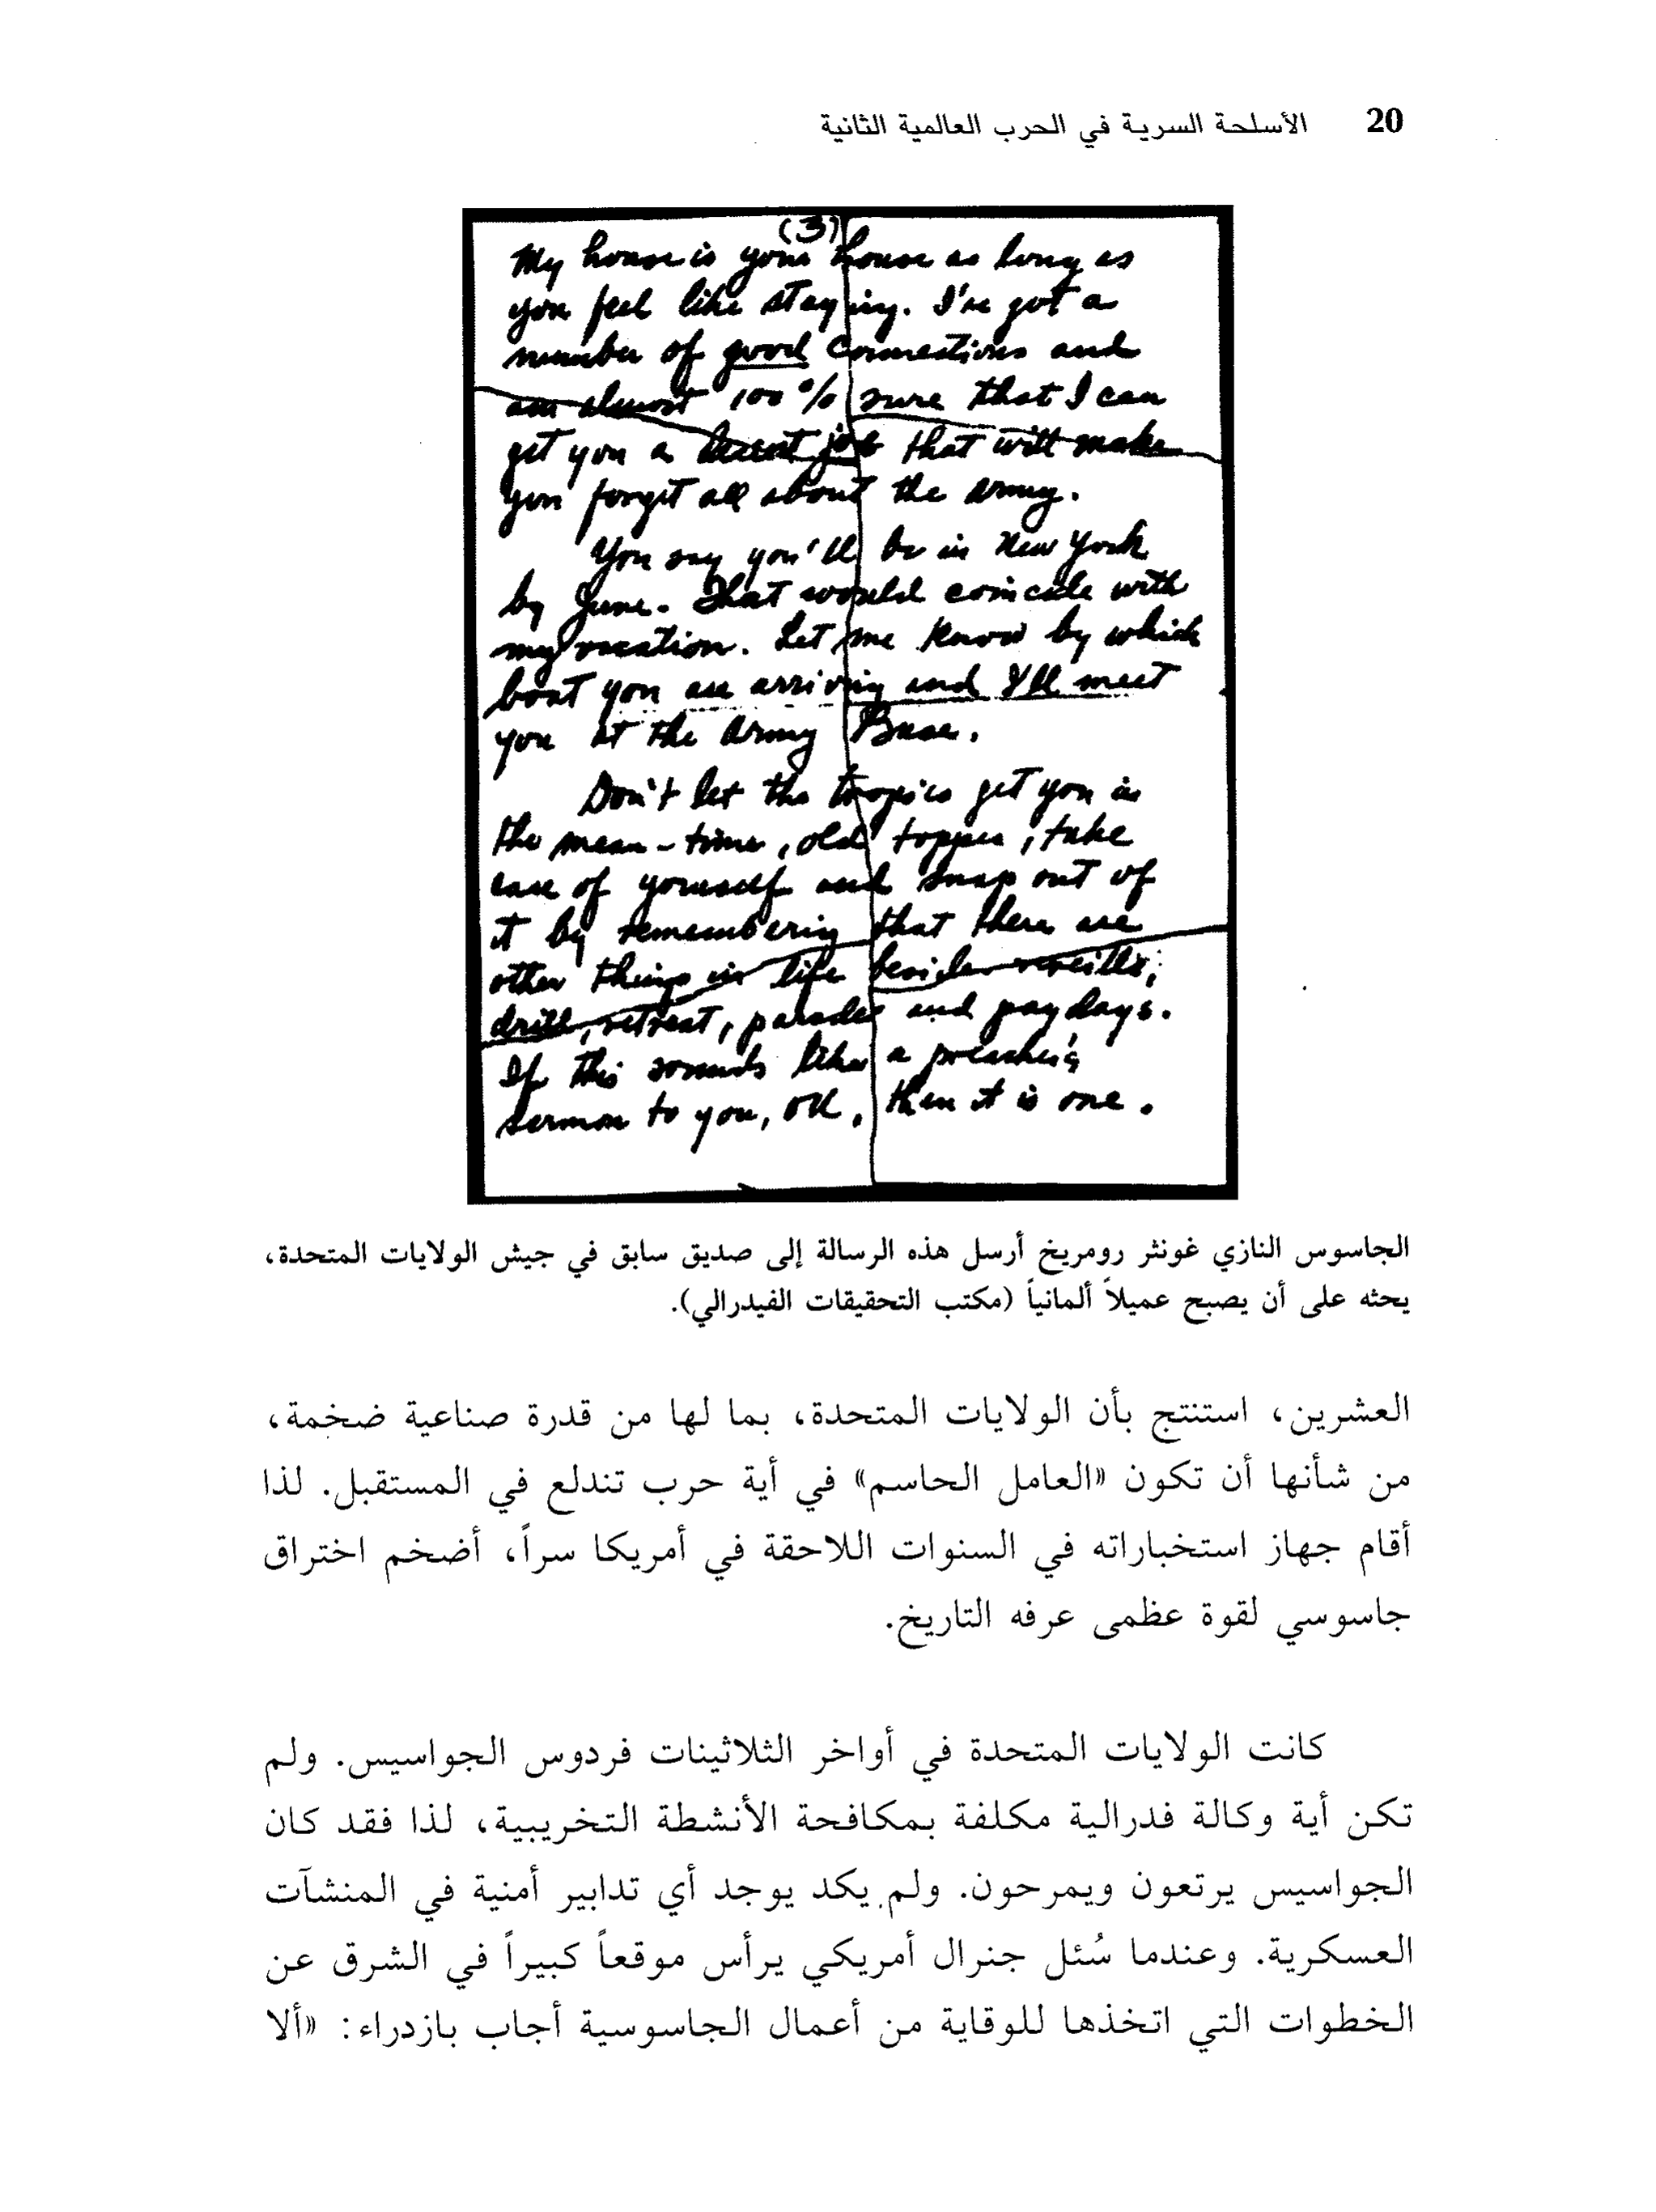 20 الأسلحة السرية في الحرب العالمية الثانية
(3)
My house is your house as long as
you feel like staying. I've got a
number of good connections and
am almost 100% sure that I can
get you a decent job that will make
you forget all about the Army.
You say you'll be in New York
by June. That would coincide with
my vacation. Let me know by which
boat you are arriving and I'll meet
you at the Army Base.
Don't let the tropics get you in
the mean-time, old topper, take
care of yourself and snap out of
it by remembering that there are
other things in life beside reveille,
drill, retreat, parades and pay days.
If this sounds like a preacher's
sermon to you, OK, then it is one.
الجاسوس النازي غونثر رومريخ أرسل هذه الرسالة إلى صديق سابق في جيش الولايات المتحدة،
يحثه على أن يصبح عميلاً ألمانياً (مكتب التحقيقات الفيدرالي).
العشرين، استنتج بأن الولايات المتحدة، بما لها من قدرة صناعية ضخمة،
من شأنها أن تكون «العامل الحاسم» في أية حرب تندلع في المستقبل. لذا
أقام جهاز استخباراته في السنوات اللاحقة في أمريكا سراً، أضخم اختراق
جاسوسي لقوة عظمى عرفه التاريخ.
كانت الولايات المتحدة في أواخر الثلاثينات فردوس الجواسيس. ولم
تكن أية وكالة فدرالية مكلفة بمكافحة الأنشطة التخريبية، لذا فقد كان
الجواسيس يرتعون ويمرحون. ولم يكد يوجد أي تدابير أمنية في المنشآت
العسكرية. وعندما سُئل جنرال أمريكي يرأس موقعاً كبيراً في الشرق عن
الخطوات التي اتخذها للوقاية من أعمال الجاسوسية أجاب بازدراء: «ألا